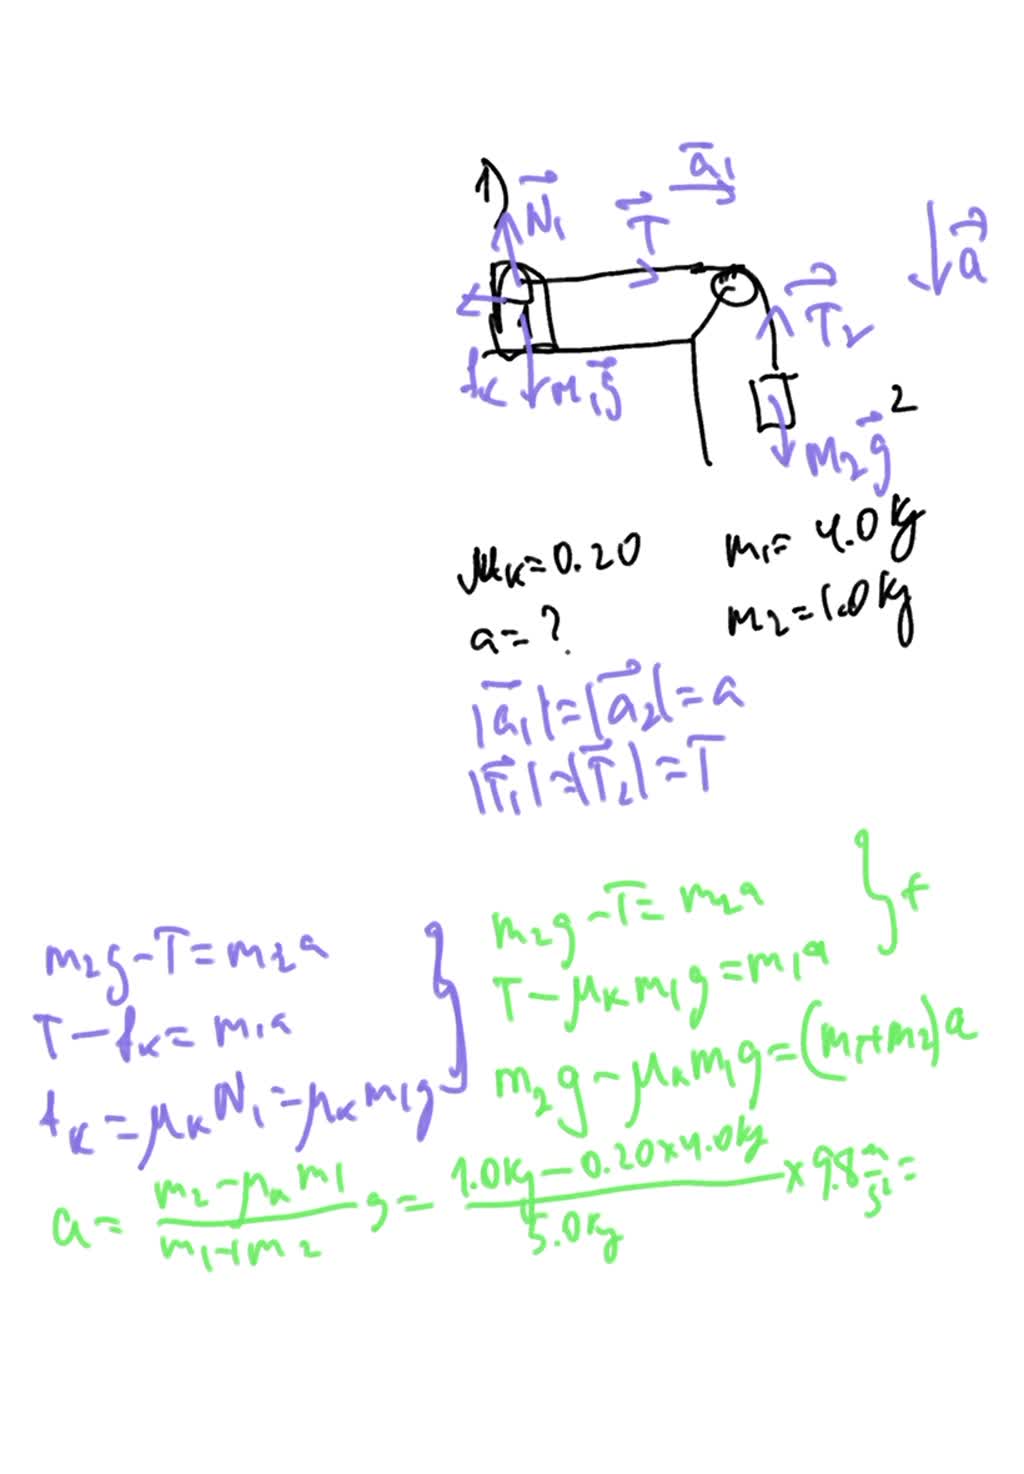 1
N⃗₁
T⃗
a⃗₁
a⃗
T⃗₂
fₖ
m₁g⃗
2
m₂g⃗
μₖ=0.20
m₁=4.0kg
a=?
m₂=1.0kg
|a⃗₁|=|a⃗₂|=a
|T⃗₁|=|T⃗₂|=T
m₂g-T=m₂a
T-fₖ=m₁a
fₖ=μₖN₁=μₖm₁g
m₂g-T=m₂a
+
T-μₖm₁g=m₁a
m₂g-μₖm₁g=(m₁+m₂)a
a=(m₂-μₖm₁)/(m₁+m₂) g=(1.0kg-0.20×4.0kg)/(5.0kg)×9.8 m/s²=